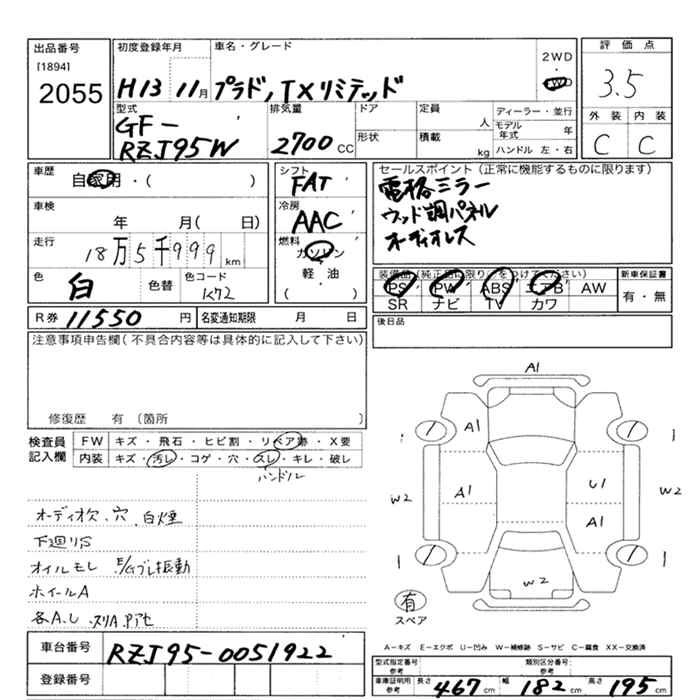 出品番号
[1894]
2055
初度登録年月
H13 11月
車名・グレード
プラド, TXリミテッド
2WD
4WD
評価点
3.5
外装 内装
C C
型式
GF-
RZJ95W
排気量
2700 CC
ドア
形状
定員 人
積載 kg
ディーラー・並行
モデル年式 年
ハンドル 左・右
車歴
自家用・( )
車検
年 月( 日)
走行
18万5千999 km
色
白 色替
色コード
KZ2
シフト
FAT
冷房
AAC
燃料
ガソリン
軽・油
( )
セールスポイント(正常に機能するものに限ります)
電格ミラー
ウッド調パネル
オーディオレス
装備品(純正品に限り)○をつけてください)
PS PW ABS エアB AW
SR ナビ TV カワ
新車保証書
有・無
R券 11550 円
名変通知期限 月 日
後日品
注意事項申告欄(不具合内容等は具体的に記入して下さい)
修復歴 有(箇所 )
検査員
記入欄
FW キズ・飛石・ヒビ割・リペア跡・X要
内装 キズ・汚レ・コゲ・穴・スレ・キレ・破レ
ハンドル
オーディオ欠、穴、白煙
下廻りS
オイルモレ E/Gブレ振動
ホイールA
各A.U
車台番号 RZJ95-0051922
登録番号
A1
A1
A1
U1
A1
W2
W2
W2
有
スペア
A-キズ E-エクボ U-凹み W-補修跡 S-サビ C-腐食 XX-交換済
型式指定番号
参考
類別区分番号
参考
車庫証明用
参考
長さ 467 cm 幅 182 cm 高さ 195 cm